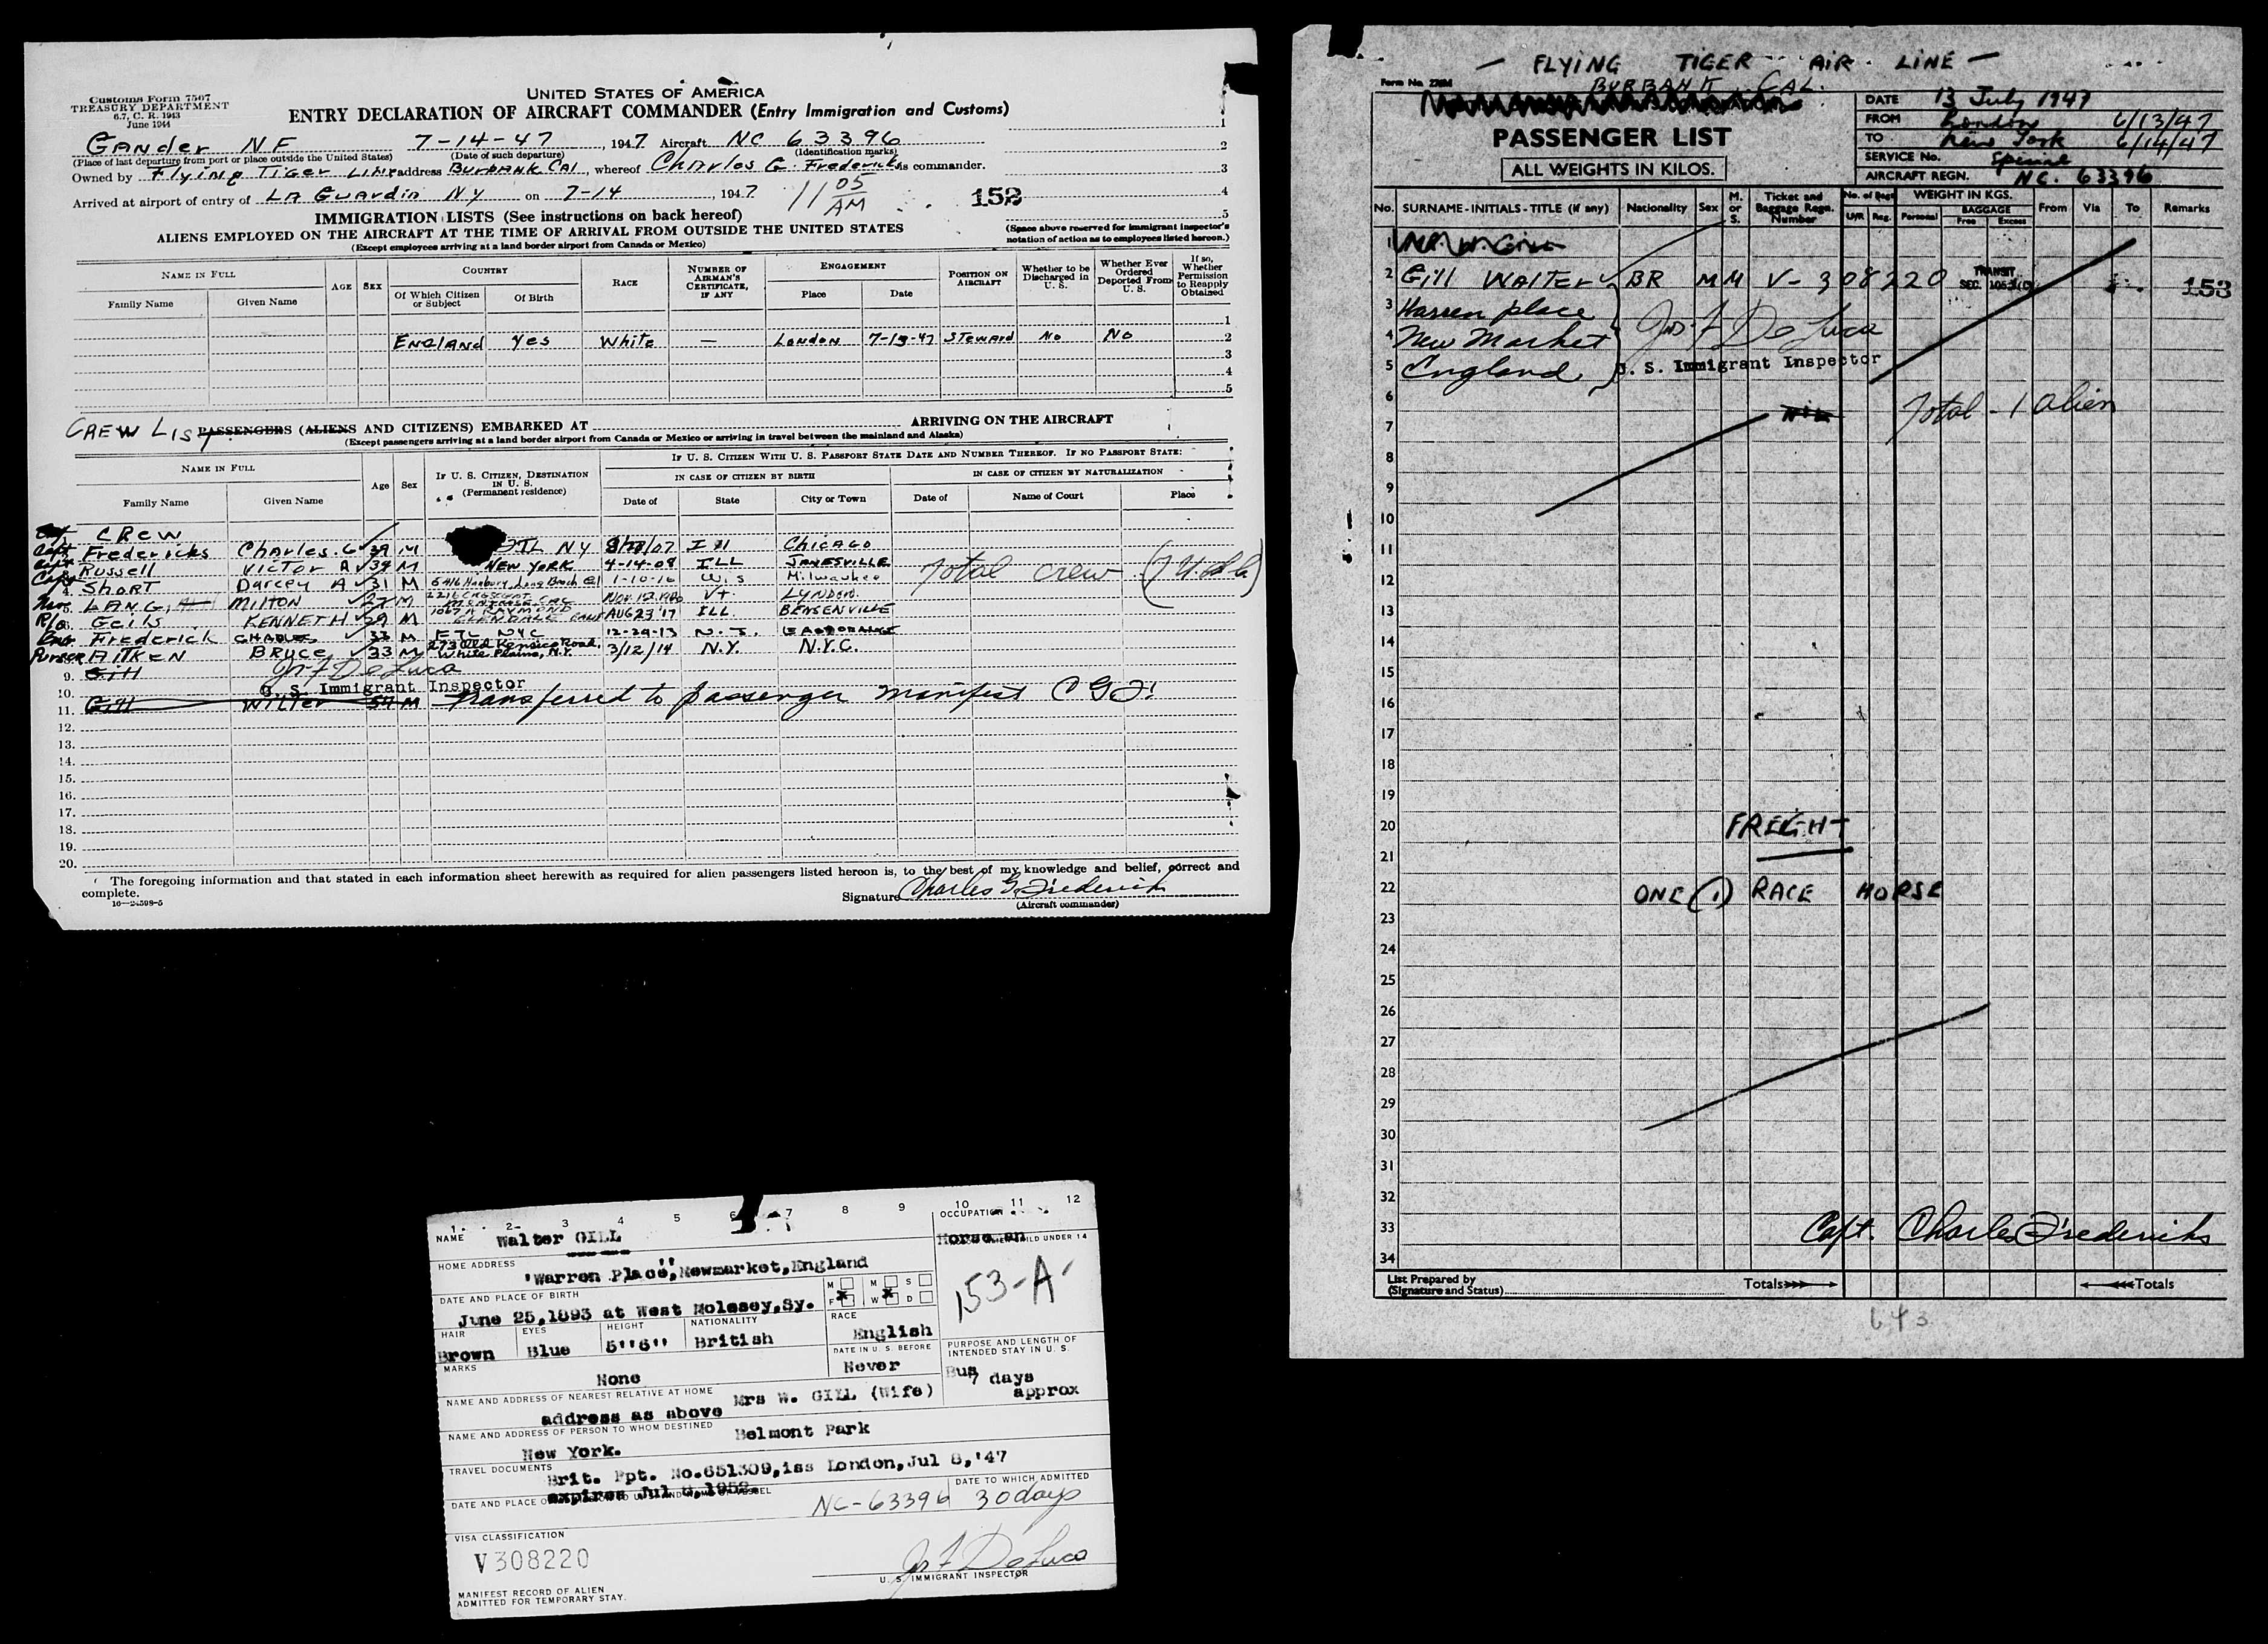 Customs Form 7507
TREASURY DEPARTMENT
6.7, C. R. 1943
June 1944
UNITED STATES OF AMERICA
ENTRY DECLARATION OF AIRCRAFT COMMANDER (Entry Immigration and Customs)
Gander NF 7-14-47, 1947 Aircraft NC 63396
(Place of last departure from port or place outside the United States) (Date of such departure) (Identification marks)
Owned by Flying Tiger Line address Burbank Cal, whereof Charles G. Fredericks is commander.
Arrived at airport of entry of La Guardia NY on 7-14, 1947 11 05 AM
152
1
2
3
4
5
IMMIGRATION LISTS (See instructions on back hereof)
ALIENS EMPLOYED ON THE AIRCRAFT AT THE TIME OF ARRIVAL FROM OUTSIDE THE UNITED STATES
(Except employees arriving at a land border airport from Canada or Mexico)
(Space above reserved for immigrant inspector's
notation of action as to employees listed hereon.)
NAME IN FULL
Family Name Given Name
AGE SEX
COUNTRY
Of Which Citizen or Subject Of Birth
RACE
NUMBER OF AIRMAN'S CERTIFICATE, IF ANY
ENGAGEMENT
Place Date
POSITION ON AIRCRAFT
Whether to be Discharged in U. S.
Whether Ever Ordered Deported From U. S.
If so, Whether Permission to Reapply Obtained
1
ENGLAND Yes White — London 7-13-47 STEWARD No No 2
3
4
5
CREW LIST PASSENGERS (ALIENS AND CITIZENS) EMBARKED AT ARRIVING ON THE AIRCRAFT
(Except passengers arriving at a land border airport from Canada or Mexico or arriving in travel between the mainland and Alaska)
NAME IN FULL
Family Name Given Name
Age Sex
IF U. S. CITIZEN, DESTINATION IN U. S.
(Permanent residence)
IF U. S. CITIZEN WITH U. S. PASSPORT STATE DATE AND NUMBER THEREOF. IF NO PASSPORT STATE:
IN CASE OF CITIZEN BY BIRTH
Date of State City or Town
IN CASE OF CITIZEN BY NATURALIZATION
Date of Name of Court Place
CREW
Capt Fredericks Charles G 39 M NY Ill CHICAGO
Capt Russell Victor A 39 M NEW YORK 4-14-08 ILL JANESVILLE
Capt SHORT Darcey A 31 M Long Beach 1-10-16 Wis Milwaukee
Nav LANG, MILTON 27 M Vt. LYNDON
R/O Geils KENNETH 29 M 1067 N RAYMOND GLENDALE AUG 23 '17 ILL. BENSENVILLE
Frederick CHARLES 33 M NYC 12-29-13 N.J. EAST ORANGE
Purser AITKEN BRUCE 33 M 273 Old Kensico Road, White Plains, N.Y. 3/12/14 N.Y. N.Y.C.
Total crew
9. Gill Jos F De Luca
10. U. S. Immigrant Inspector
11. Gill Wilter 54 M Transferred to passenger manifest C G F!
12.
13.
14.
15.
16.
17.
18.
19.
20.
The foregoing information and that stated in each information sheet herewith as required for alien passengers listed hereon is, to the best of my knowledge and belief, correct and
complete.
16—24598-5
Signature Charles G. Frederick
(Aircraft commander)
— FLYING TIGER AIR LINE —
BURBANK CAL.
PASSENGER LIST
ALL WEIGHTS IN KILOS.
DATE 13 July 1947
FROM London 6/13/47
TO New York 6/14/47
SERVICE No. Special
AIRCRAFT REGN. NC. 63396
No. SURNAME-INITIALS-TITLE (If any) Nationality Sex M. or S. Ticket and Baggage Regn. Number No. of Bags U/R Reg. WEIGHT IN KGS. Personal BAGGAGE Free Excess From Via To Remarks
1 Mr. W. Gill
2 Gill Walter BR M M V-308220 TRANSIT 153
3 Warren place
4 New Market Jos F De Luca
5 England U. S. Immigrant Inspector
6 Total - 1 alien
7 NIL
8
9
10
11
12
13
14
15
16
17
18
19
20 FREIGHT
21
22 ONE (1) RACE HORSE
23
24
25
26
27
28
29
30
31
32
33 Capt. Charles Fredericks
34
List Prepared by
(Signature and Status)
Totals Totals
643
1 2 3 4 5 6 7 8 9 10 11 12
NAME Walter GILL
OCCUPATION Horseman
HOME ADDRESS
'Warren Place", Newmarket, England
153-A
DATE AND PLACE OF BIRTH
June 25, 1893 at West Molesey, Sy.
M F x M W x S D
HAIR Brown
EYES Blue
HEIGHT 5''6''
NATIONALITY British
RACE English
MARKS None
DATE IN U. S. BEFORE Never
PURPOSE AND LENGTH OF INTENDED STAY IN U. S.
Bus 7 days approx
NAME AND ADDRESS OF NEAREST RELATIVE AT HOME Mrs W. GILL (Wife)
address as above
NAME AND ADDRESS OF PERSON TO WHOM DESTINED Belmont Park
New York.
TRAVEL DOCUMENTS
Brit. Ppt. No.651309, iss London, Jul 8, '47
expires Jul 8, 1952.
NC-63396
DATE TO WHICH ADMITTED
30 days
VISA CLASSIFICATION
V308220
Jos F De Luca
U. S. IMMIGRANT INSPECTOR
MANIFEST RECORD OF ALIEN
ADMITTED FOR TEMPORARY STAY.